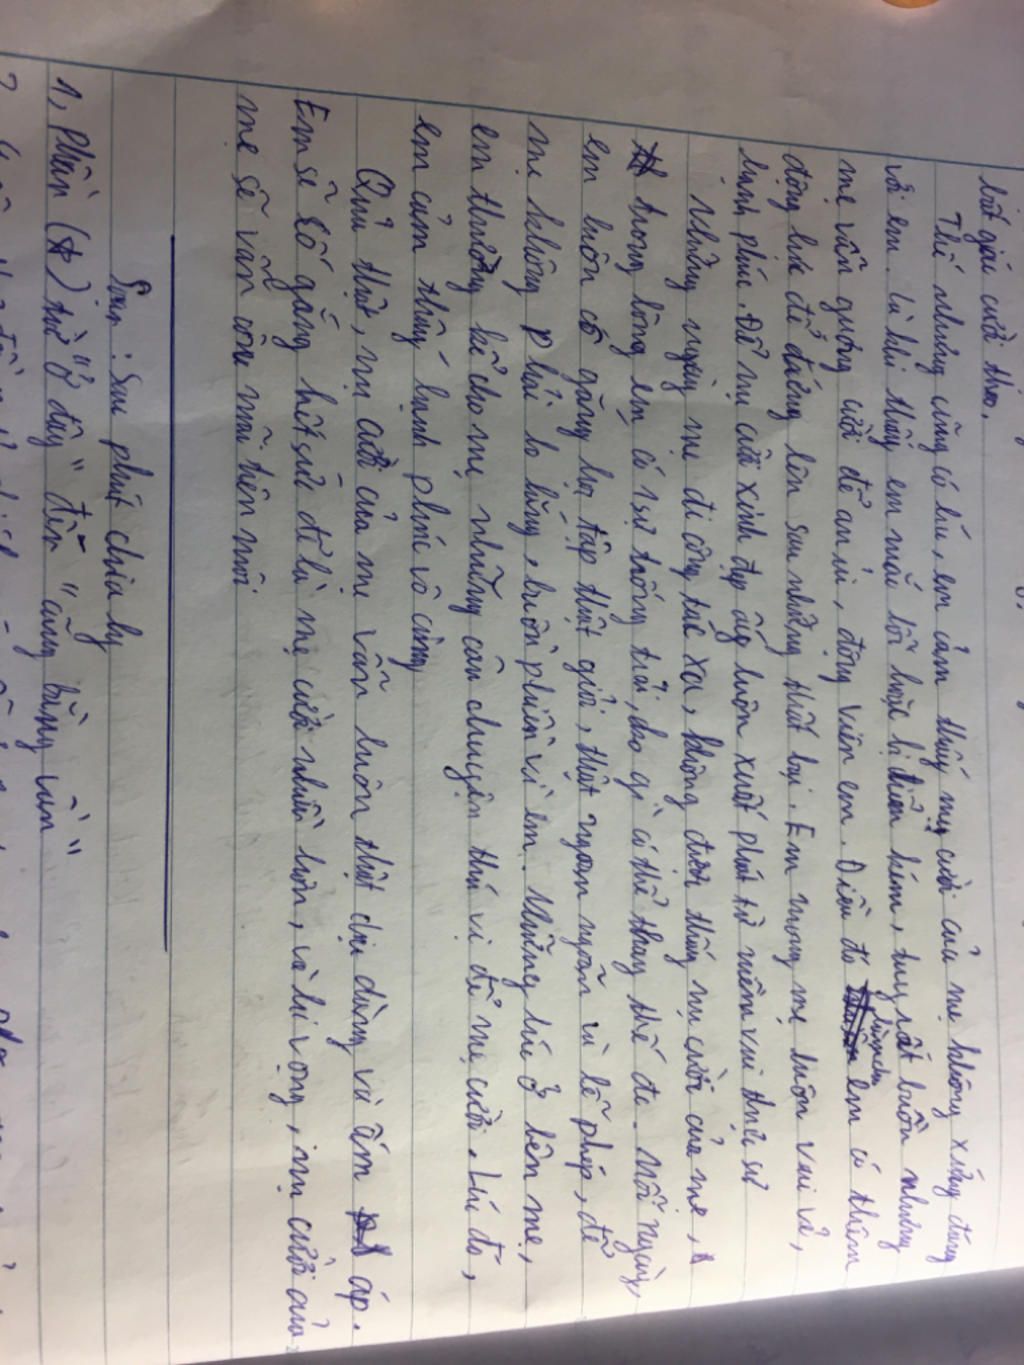 bất giác cười theo.
Thế nhưng cũng có lúc, em cảm thấy nụ cười của mẹ không xứng đáng
với em. Là khi thấy em mắc lỗi hoặc bị điểm kém, tuy rất buồn nhưng
mẹ vẫn gượng cười để an ủi, động viên em. Điều đó làm cho em có thêm
động lực để đứng lên sau những thất bại. Em mong mẹ luôn vui vẻ,
hạnh phúc. Để nụ cười xinh đẹp ấy luôn xuất phát từ niềm vui thực sự
Những ngày mẹ đi công tác xa, không được thấy nụ cười của mẹ,
trong lòng em có sự trống trải, ko gì có thể thay thế đc. Mỗi ngày,
em luôn cố gắng học tập thật giỏi, thật ngoan ngoãn và lễ phép, để
mẹ không phải lo lắng, buồn phiền vì em. Những lúc ở bên mẹ,
em thường kể cho mẹ những câu chuyện thú vị để mẹ cười. Lúc đó,
em cảm thấy hạnh phúc vô cùng
Quả thật, nụ cười của mẹ vẫn luôn thật dịu dàng và ấm áp.
Em sẽ cố gắng hết sức để là mẹ cười nhiều hơn, và hi vọng, nụ cười của
mẹ sẽ vẫn còn mãi trên môi
Soạn: Sau phút chia ly
1, Phần (*) từ "ở đây" đến "cũng bằng vần"